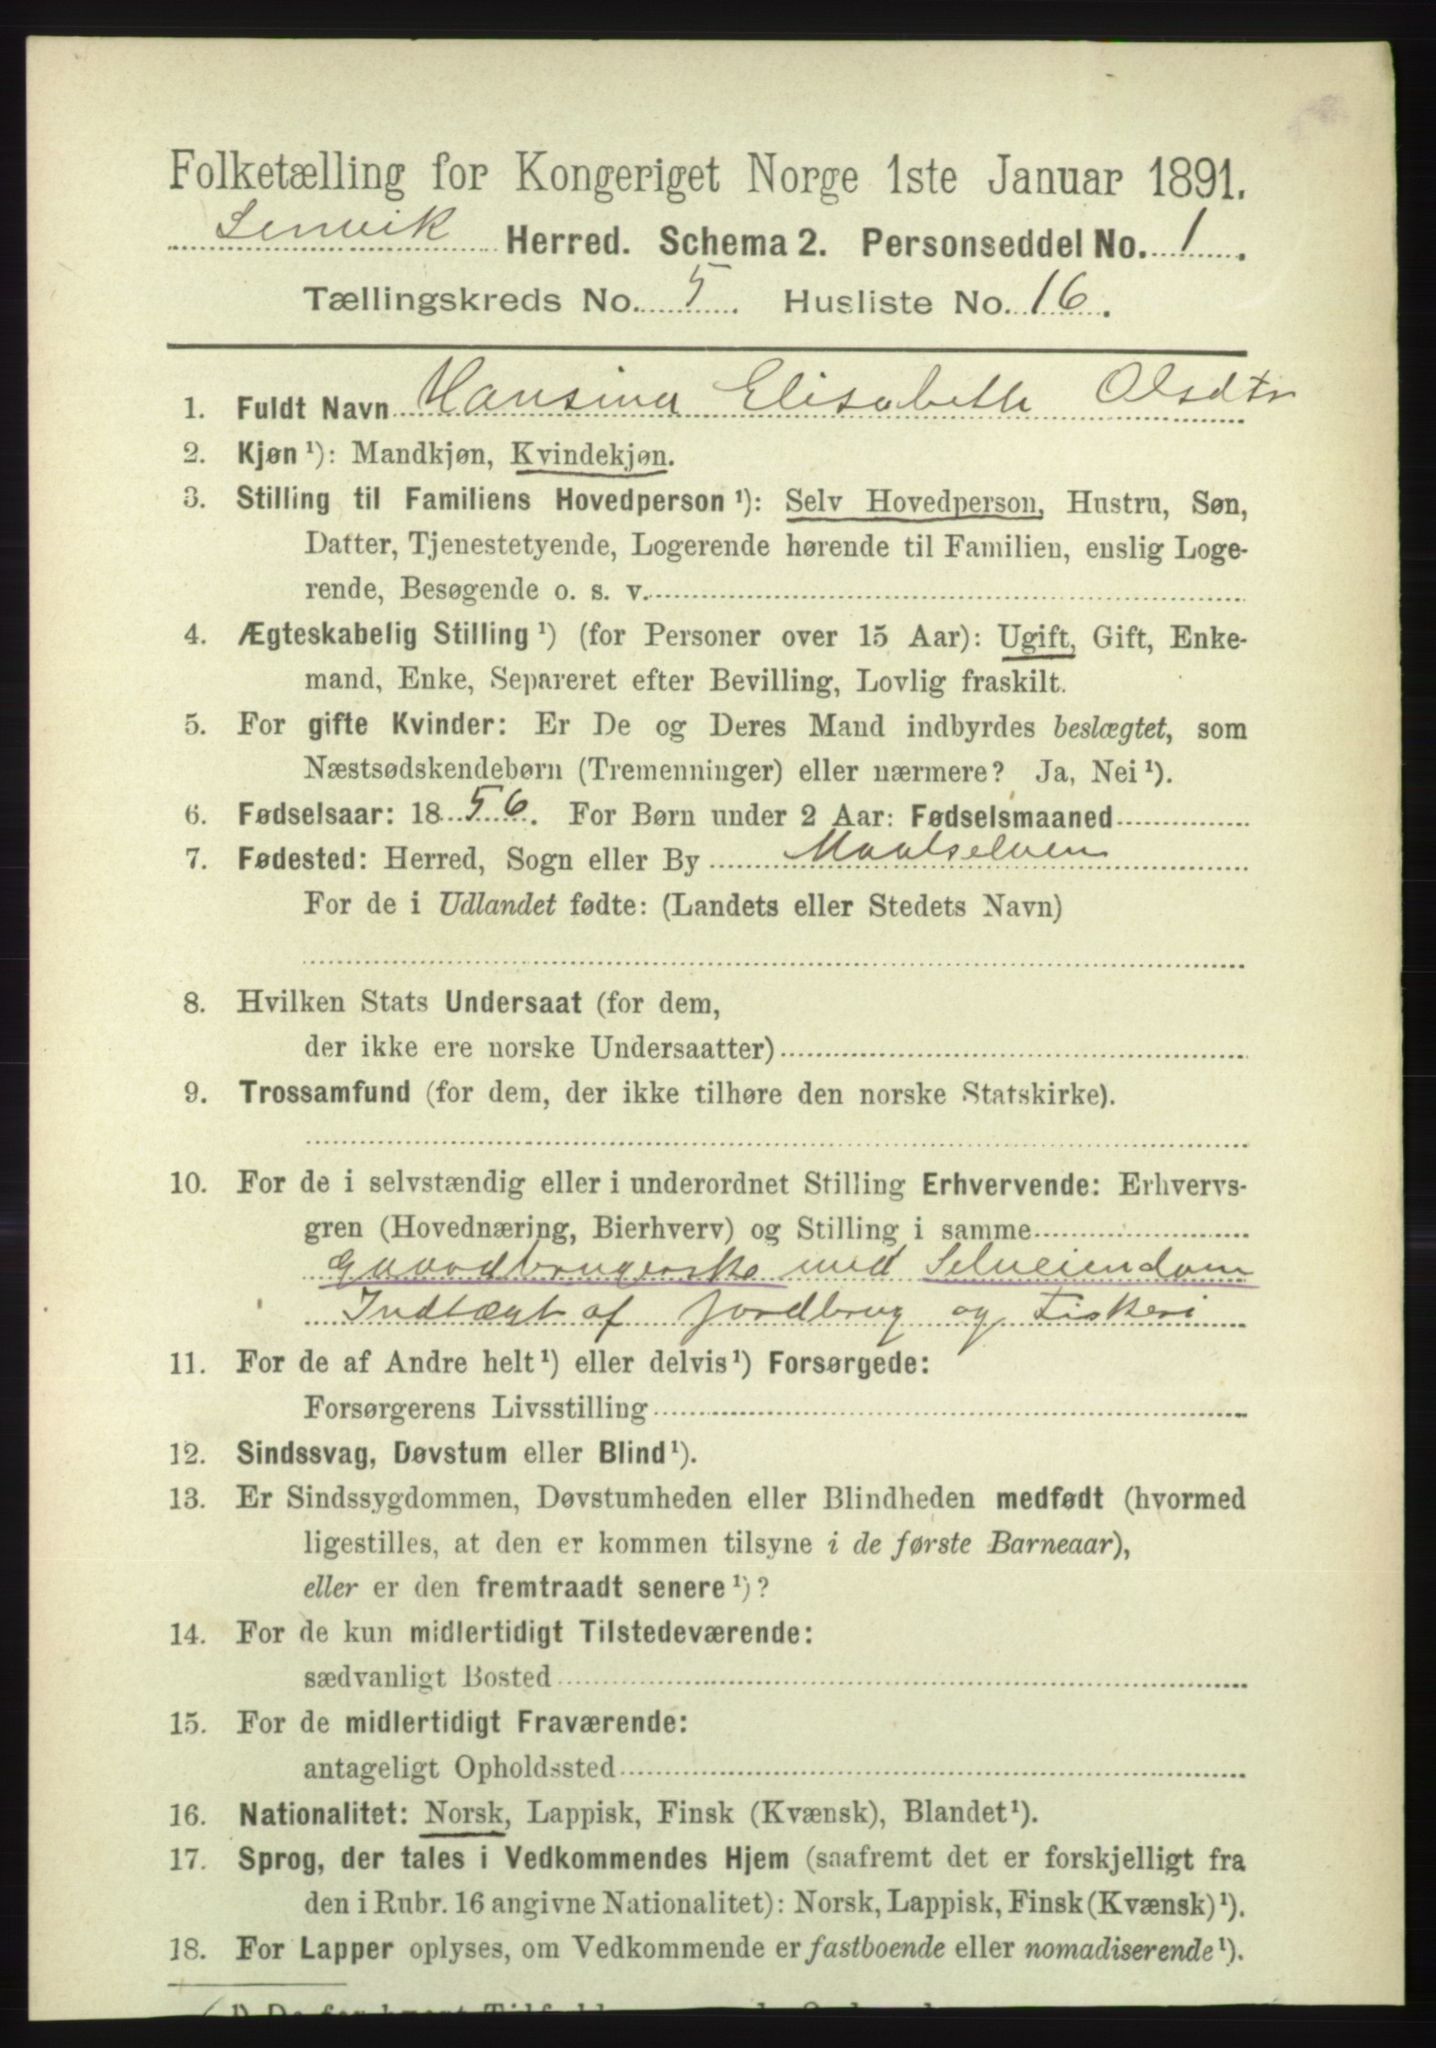 Folketælling for Kongeriget Norge 1ste Januar 1891.
Lenvik Herred. Schema 2. Personseddel No. 1.
Tællingskreds No. 5. Husliste No. 16.
1. Fuldt Navn Hansina Elisabeth Olsdtr
2. Kjøn ¹): Mandkjøn, Kvindekjøn.
3. Stilling til Familiens Hovedperson ¹): Selv Hovedperson, Hustru, Søn,
Datter, Tjenestetyende, Logerende hørende til Familien, enslig Loge-
rende, Besøgende o. s. v.
4. Ægteskabelig Stilling ¹) (for Personer over 15 Aar): Ugift, Gift, Enke-
mand, Enke, Separeret efter Bevilling, Lovlig fraskilt.
5. For gifte Kvinder: Er De og Deres Mand indbyrdes beslægtet, som
Næstsødskendebørn (Tremenninger) eller nærmere? Ja, Nei ¹).
6. Fødselsaar: 1856. For Børn under 2 Aar: Fødselsmaaned
7. Fødested: Herred, Sogn eller By Maalselven
For de i Udlandet fødte: (Landets eller Stedets Navn)
8. Hvilken Stats Undersaat (for dem,
der ikke ere norske Undersaatter)
9. Trossamfund (for dem, der ikke tilhøre den norske Statskirke).
10. For de i selvstændig eller i underordnet Stilling Erhvervende: Erhvervs-
gren (Hovednæring, Bierhverv) og Stilling i samme
Gaardbrugerske med Selveiendom
Indtægt af Jordbrug og Fiskeri
11. For de af Andre helt ¹) eller delvis ¹) Forsørgede:
Forsørgerens Livsstilling
12. Sindssvag, Døvstum eller Blind ¹).
13. Er Sindssygdommen, Døvstumheden eller Blindheden medfødt (hvormed
ligestilles, at den er kommen tilsyne i de første Barneaar),
eller er den fremtraadt senere ¹)?
14. For de kun midlertidigt Tilstedeværende:
sædvanligt Bosted
15. For de midlertidigt Fraværende:
antageligt Opholdssted
16. Nationalitet: Norsk, Lappisk, Finsk (Kvænsk), Blandet ¹).
17. Sprog, der tales i Vedkommendes Hjem (saafremt det er forskjelligt fra
den i Rubr. 16 angivne Nationalitet): Norsk, Lappisk, Finsk (Kvænsk) ¹).
18. For Lapper oplyses, om Vedkommende er fastboende eller nomadiserende ¹).